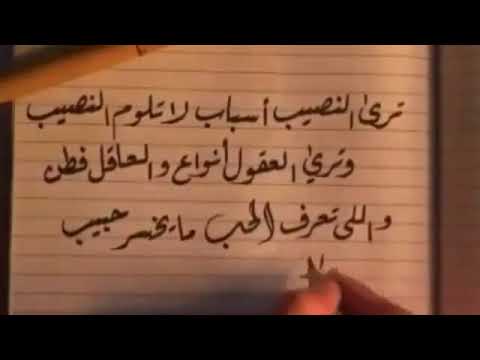 ترىٰ النصيب أسباب لا تلوم النصيب
وترىٰ العقول أنواع والعاقل فطن
واللي تعرف الحب ما يخسر حبيب